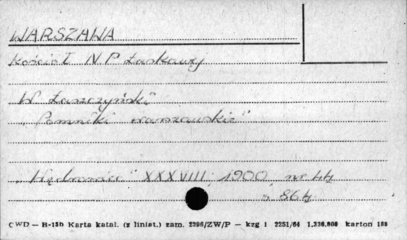 WARSZAWA
Kościół N.P. Łaskawej
W. Łaszczyński
"Pomniki warszawskie"
"Wędrowiec" XXXVIII, 1900, nr 44
s. 864
CWD — B-15b Karta katal. (z liniat.) zam. 2296/ZW/P — kzg 1 2251/64 1,320,000 karton